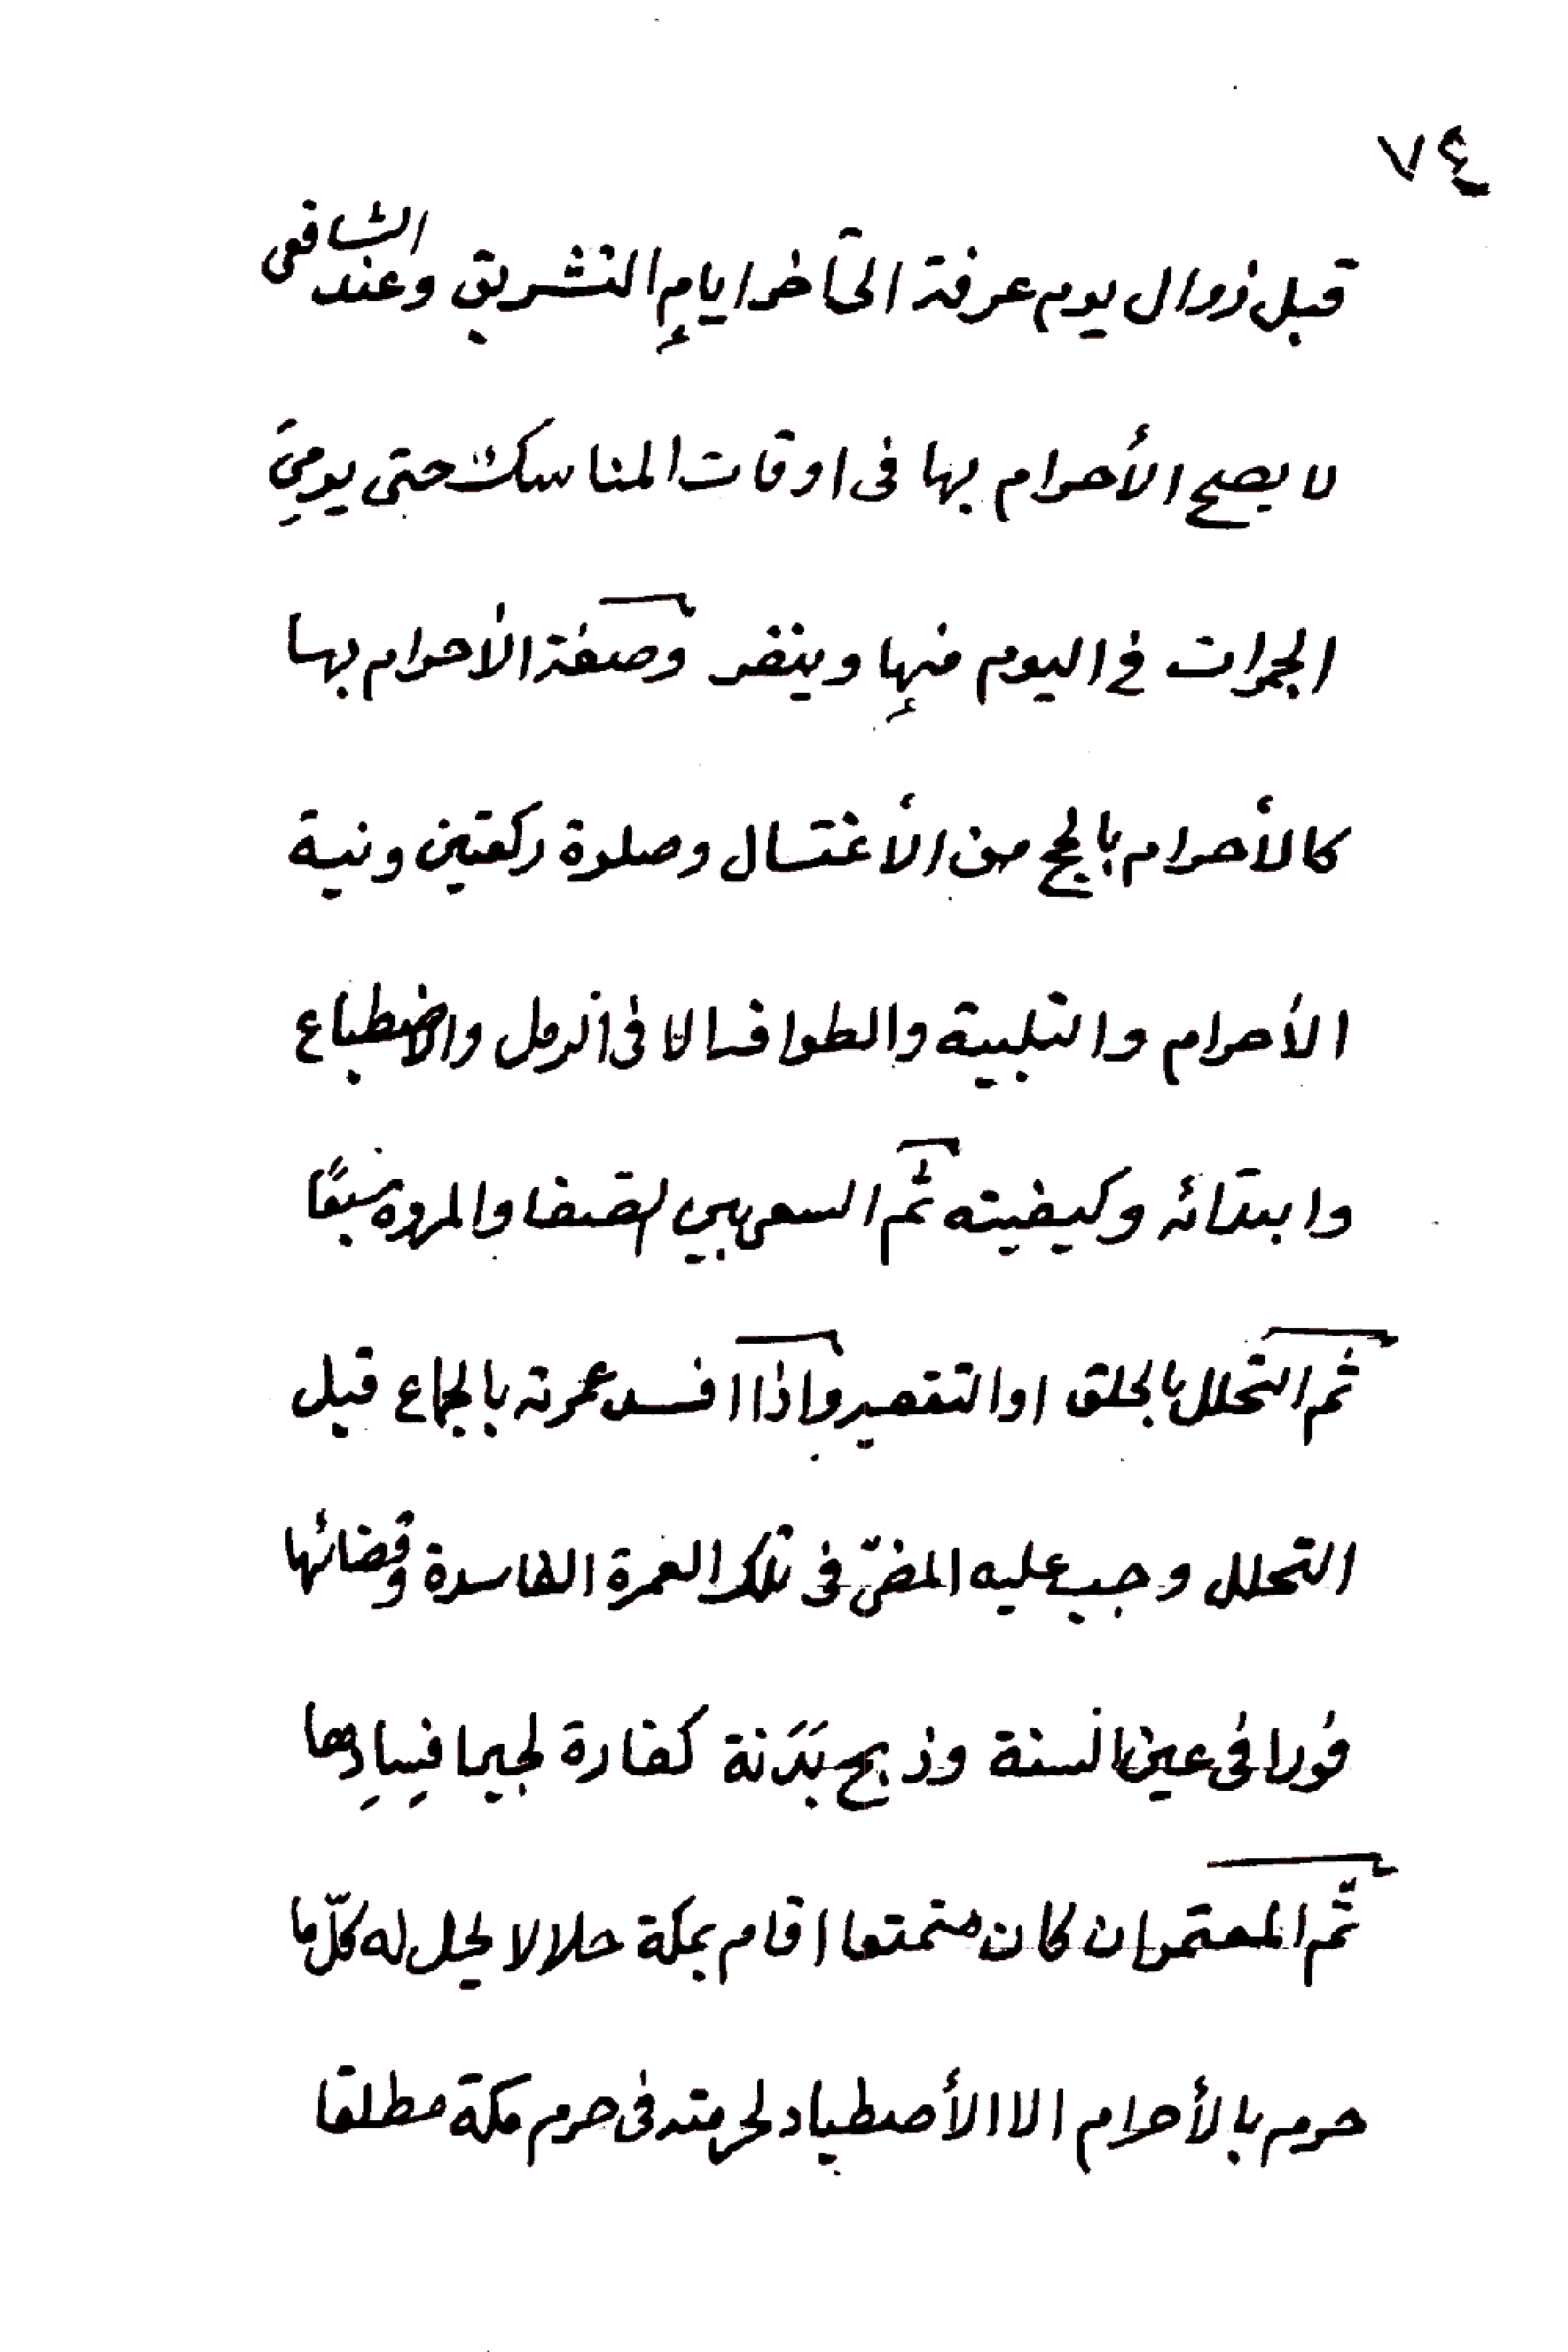 ٧٤
قبل زوال يوم عرفة الى آخر ايام التشريق وعند الشافعى
لا يصح الأحرام بها فى اوقات المناسك حتى يرمى
الجمرات فى اليوم منها وينفر وصفة الأحرام بها
كالأحرام بالحج من الأغتسال وصلوة ركعتين ونية
الأحرام والتلبية والطواف الا فى الرمل والاضطباع
وابتدائه وكيفيته ثم السعى بين الصفا والمروة سبعًا
ثم التحلل بالحلق او التقصير واذا افسد عمرته بالجماع قبل
التحلل وجب عليه المضىّ فى تلك العمرة الفاسدة وقضائها
فورا فى عين السنة وذبح بَدَنة كفارة لجبر افسادها
ثمّ المعتمر ان كان متمتعا اقام بمكة حلالا يحل له كلّ ما
حرم بالأحرام الا الأصطياد لحرمته فى حرم مكة مطلقا